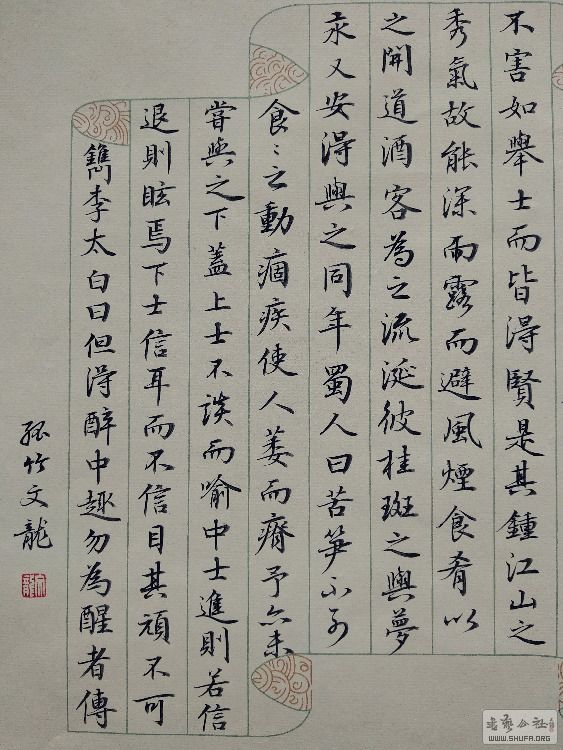 不害如舉士而皆淂賢是其鍾江山之
秀氣故能深雨露而避風煙食肴以
之開道酒客為之流涎彼桂斑之與夢
汞又安淂與之同年蜀人曰苦笋不可
食〻之動痼疾使人萎而瘠予亦未
嘗與之下蓋上士不談而喻中士進則若信
退則眩焉下士信耳而不信目其頑不可
鐫李太白曰但淂醉中趣勿為醒者傳
孤竹文龍
WWW.SHUFA.ORG